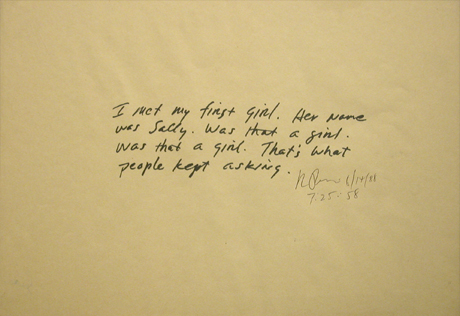 I met my first girl. Her name
was Sally. Was that a girl.
was that a girl. That's what
people kept asking.
7.25.58